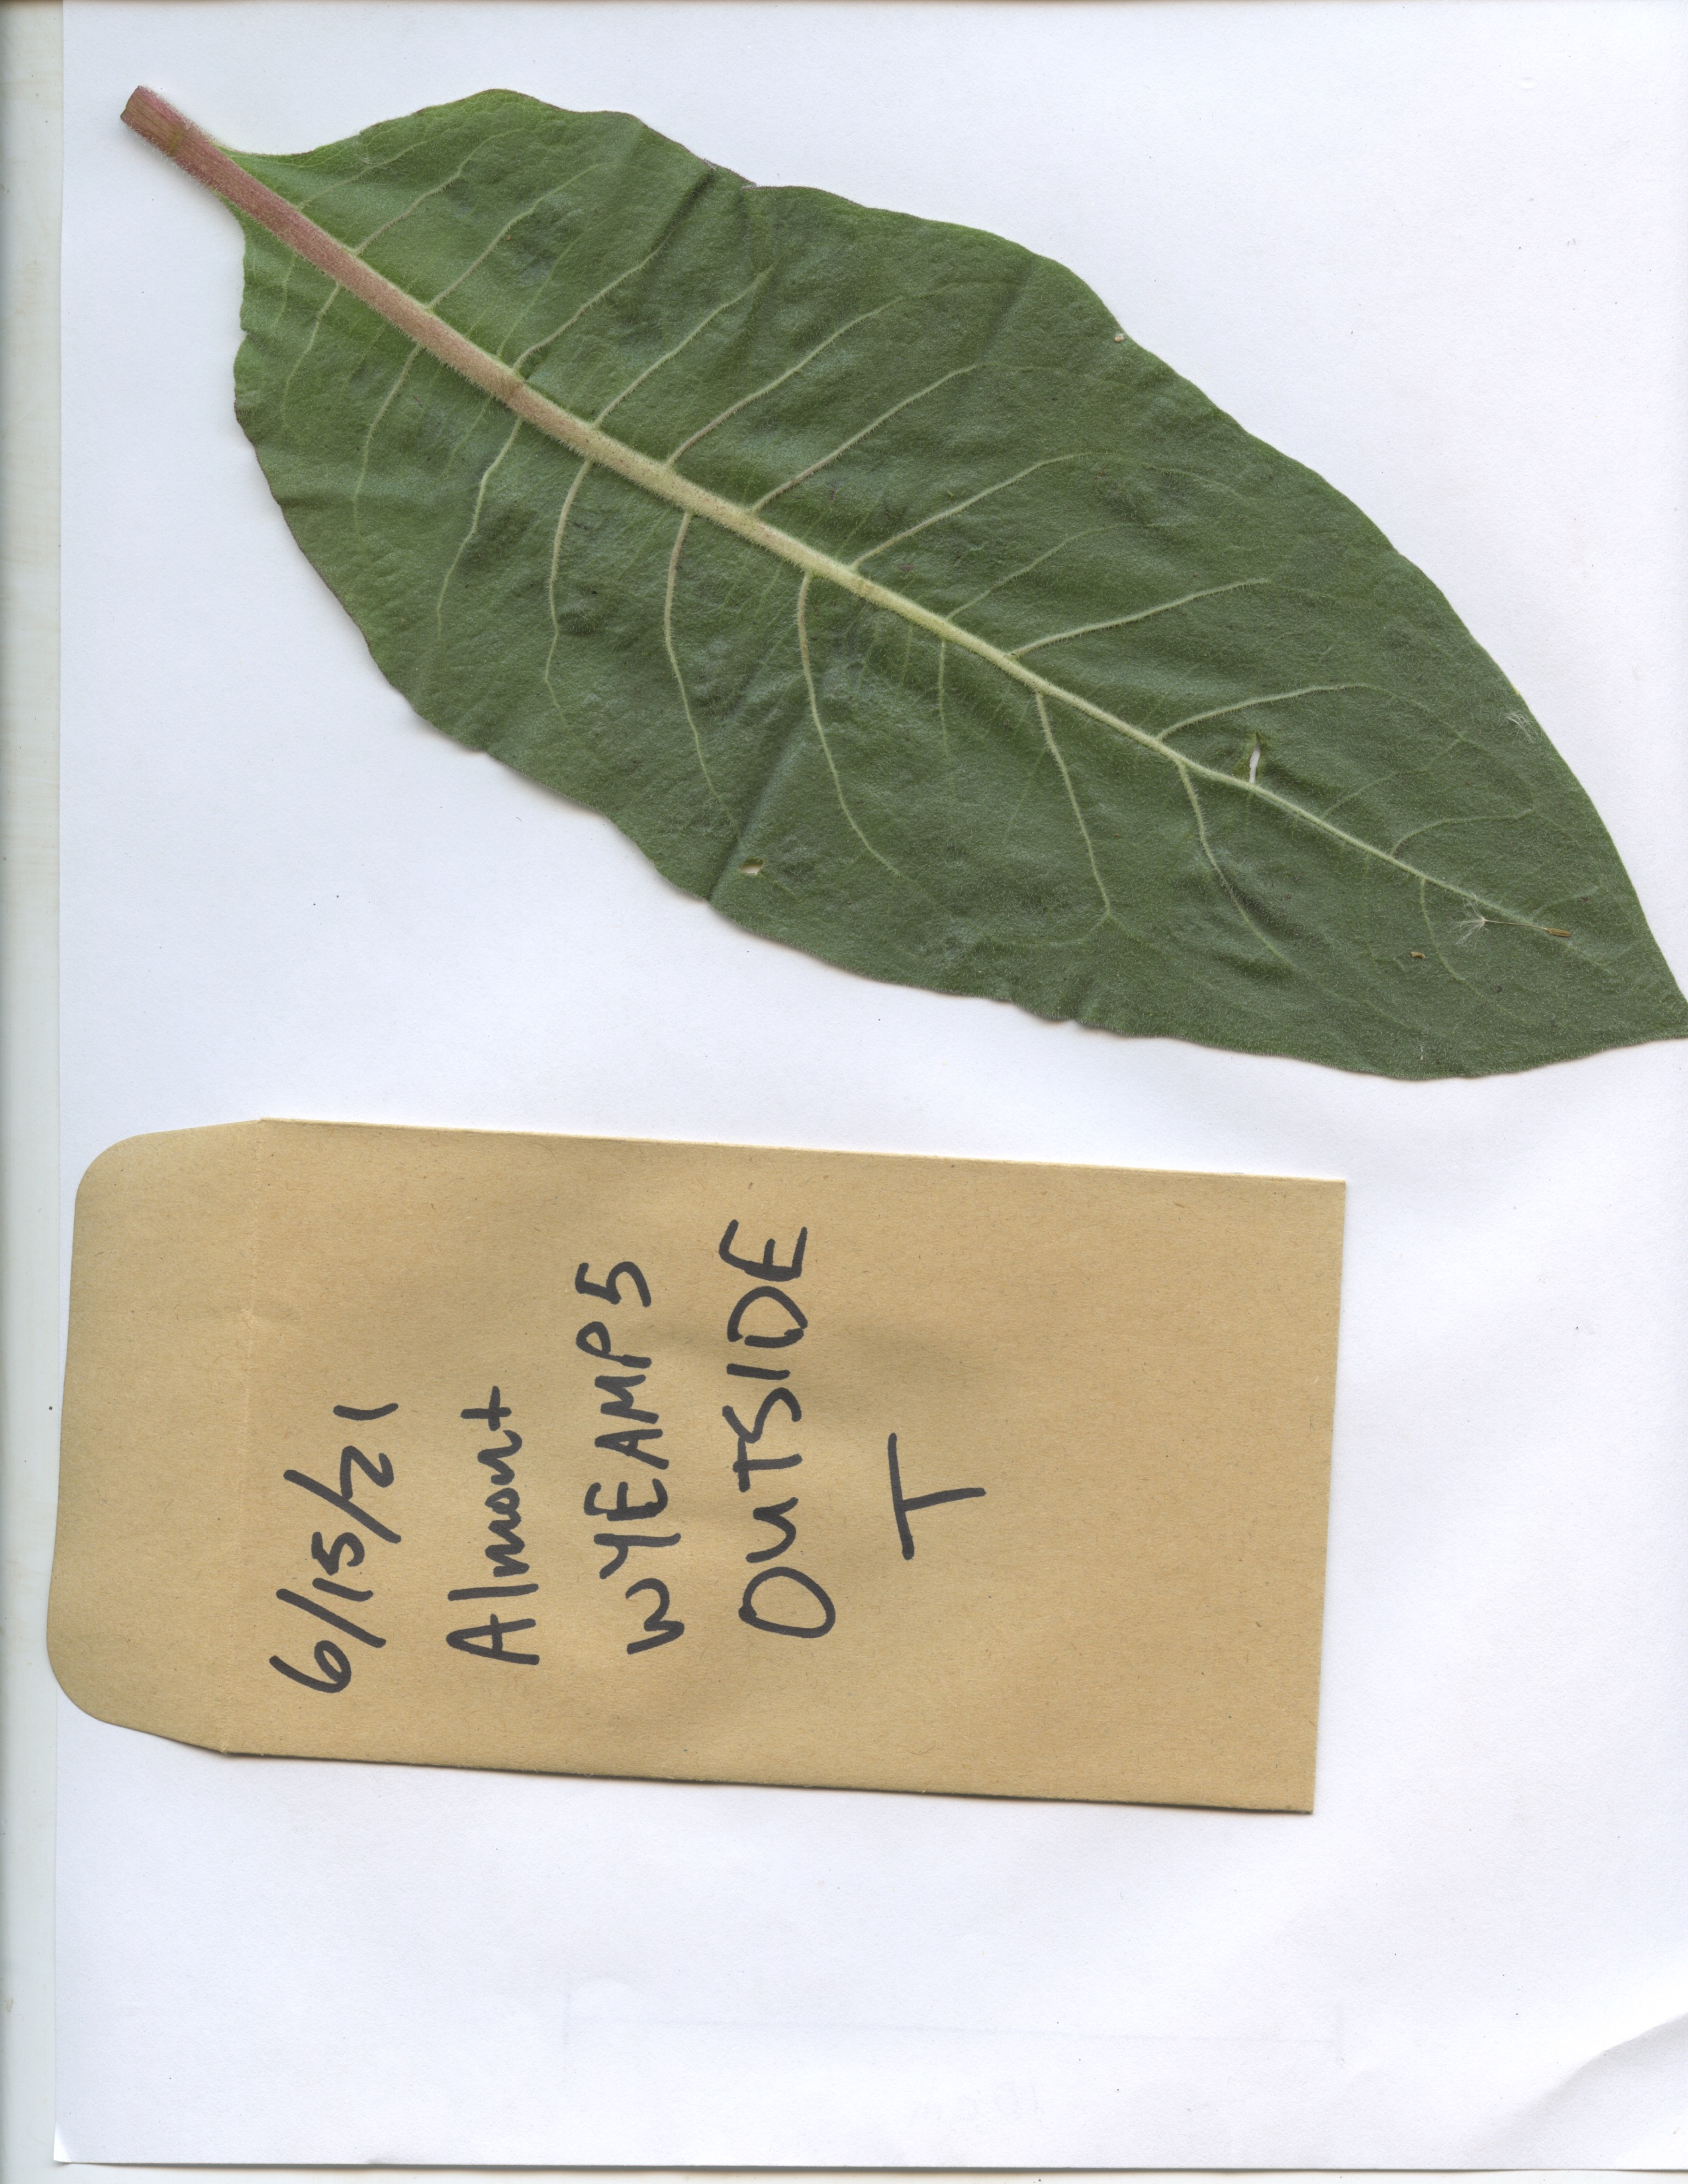 6/15/21
Almont
WYEAMP5
OUTSIDE
T